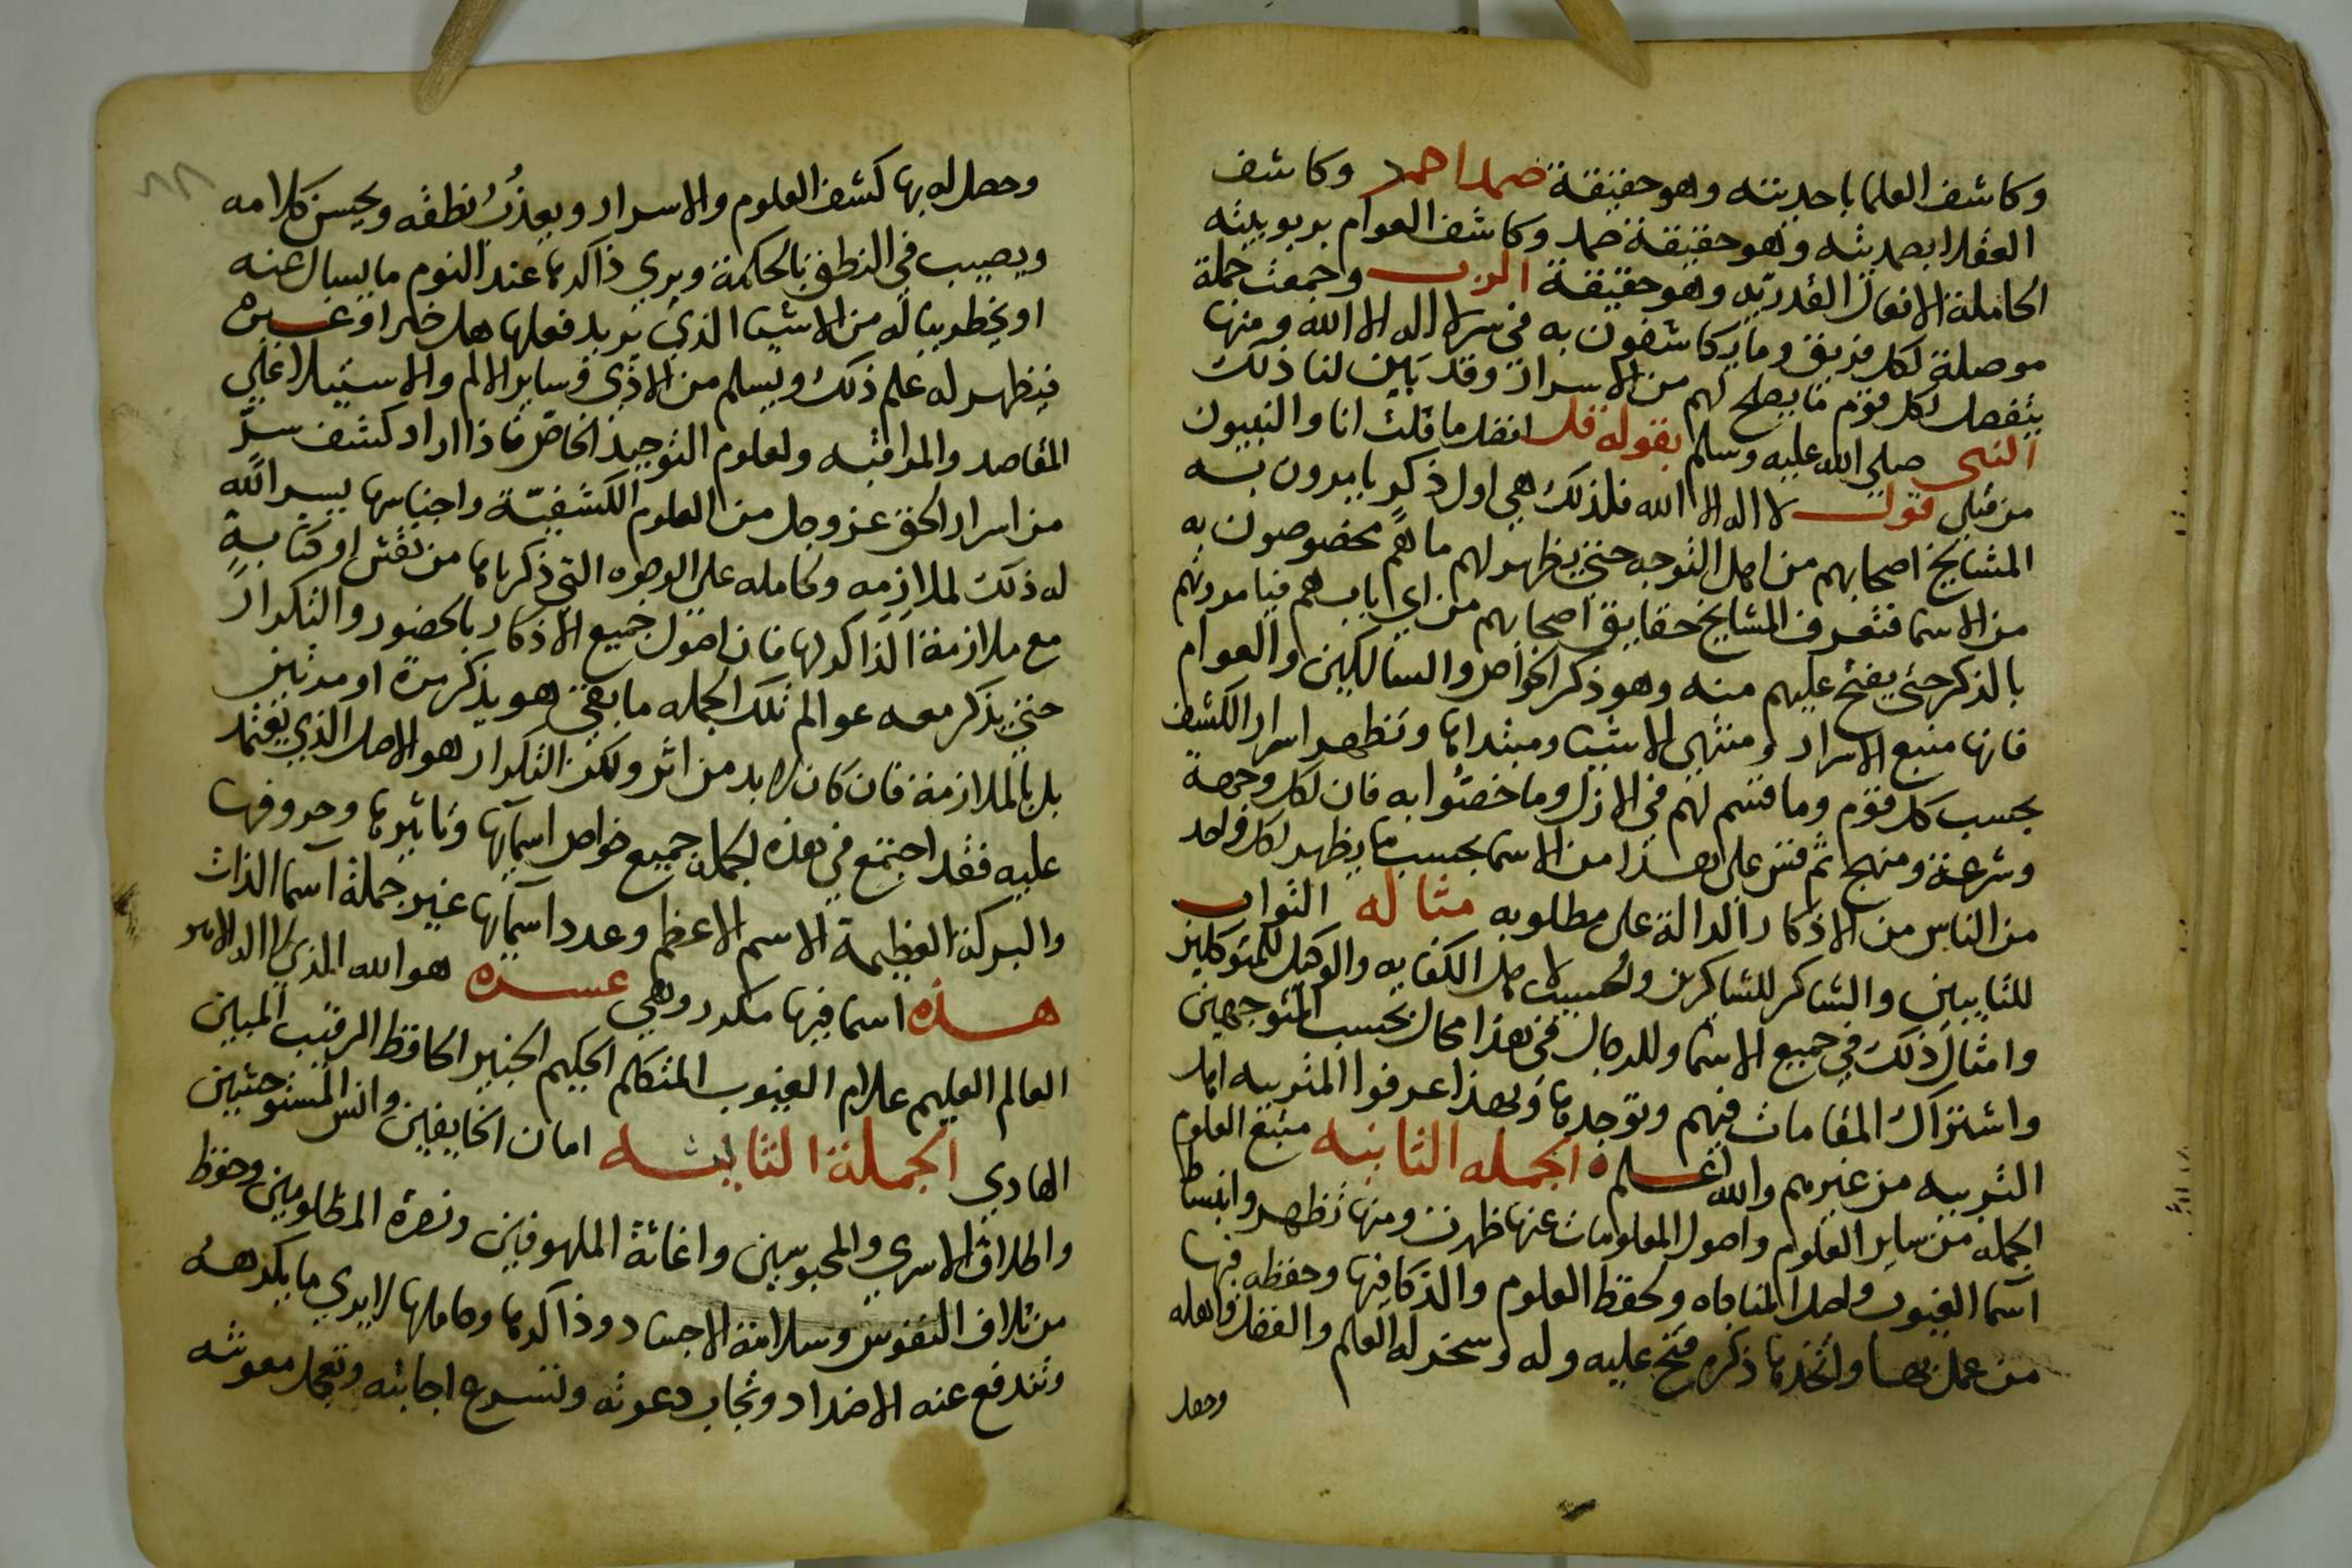 وكاشف العلما باحديته وهو حقيقة صمد احمد وكاشف
العقلا بصمديته وهو حقيقة صمد وكاشف العوام بربوبيته
الحاملة الافعال القدريه وهو حقيقة الرب وجمعت جملة
موصلة لكل فريق وما يكاشفون به في سر لا اله الا الله ومنها
يتفصل لكل قوم ما يصلح لهم من الاسرار وقد بين لنا ذلك
النبي صلى الله عليه وسلم بقوله قل افضل ما قلت انا والنبيون
من قبلي قول لا اله الا الله فلذلك هي اول ذكر يامرون به
المشايخ اصحابهم من اهل التوجه حتى يظهر لهم ما هم مخصوصون به
من الاسما فتعرف المشايخ حقايق اصحابهم من اي باب هم فيامرونهم
بالذكر حتى يفتح عليهم منه وهو ذكر الخواص والسالكين والعوام
فانها منبع الاسرار ومنتهى الاشيا ومبتداها وتظهر اسرار الكشف
بحسب كل قوم وما قسم لهم في الازل وما خصّوا به فان لكل وجهة
وشرعة ومنهج ثم قس على هذا من الاسما بحسب ما يظهر لكل واحد
من الناس من الاذكار الدالة على مطلوبه مثاله التواب
للتايبين والشاكر للشاكرين والحسيب لاهل الكفايه والوكيل للمتوكلين
وامثال ذلك في جميع الاسما وللرجال في هذا مجال بحسب المتوجهين
واشتراك المقامات فيهم وتوجدها وبهذا عرفوا المتربيه اهل
التربيه من غيرهم والله اعلم الجمله الثانيه منبع العلوم
الجمله من ساير العلوم واصول المعلومات عنها ظهرت ومنها تظهر وانبساط
آسما الغيوب واهل المناجاه ولحفظ العلوم والذكا فيها وحفظه فيها
من عمل بها واتخذها ذكره فتح عليه وله وسخر له العلم والعقل واهله
وحصل
وحصل له بها كشف العلوم والاسرار ويعذُبُ نطقه ويحسن كلامه
ويصيب في النطق بالحكمة ويري ذاكرها عند النوم ما يسال عنه
او يخطر بباله من الاشيا الذي يريد فعلها هل خير او غيره
فيظهر له علم ذلك ويسلم من الاذي وساير الالم والاستيلا على
المقاصد والمراقبه ولعلوم التوحيد الخاص فاذا اراد كشف سرّ
من اسرار الحق عز وجل من العلوم الكشفيّة واجناسها يسر الله
له ذلك لملازمه وحامله على الوجوه التي ذكرناها من نقش او كتابةٍ
مع ملازمة الذاكر لها فان اصول جميع الاذكار بالحضور والتكرار
حتى يذكر معه عوالم تلك الجمله ما بقى هو يذكر مرة او مرتين
بل بالملازمة فان كان لا بد من اثر ولكن التكرار هو الاصل الذي يعتمد
عليه فقد اجتمع في هذه الجملة جميع خواص اسمآيها وتاثيرها وحروفها
والبركة العظيمة الاسم الاعظم وعدد اسمآيها غير جملة آسما الذات
هذه اسما فيها مكرر وهي عشره هو الله الذي لا اله الا هو
العالم العليم علام الغيوب المتكلم الحكيم الخبير الحافظ الرقيب المبين
الهادي الجملة الثالثه امان الخايفين وانس المستوحشين
واطلاق الاسري والمحبوسين واغاثة الملهوفين ونصرة المظلومين وحفظ
من تلاف النفوس وسلامة الاجساد وذاكرها وحاملها لا يري ما يكرهه
وتندفع عنه الاضداد وتجاب دعوته وتسرع اجابته وتعجل معونته